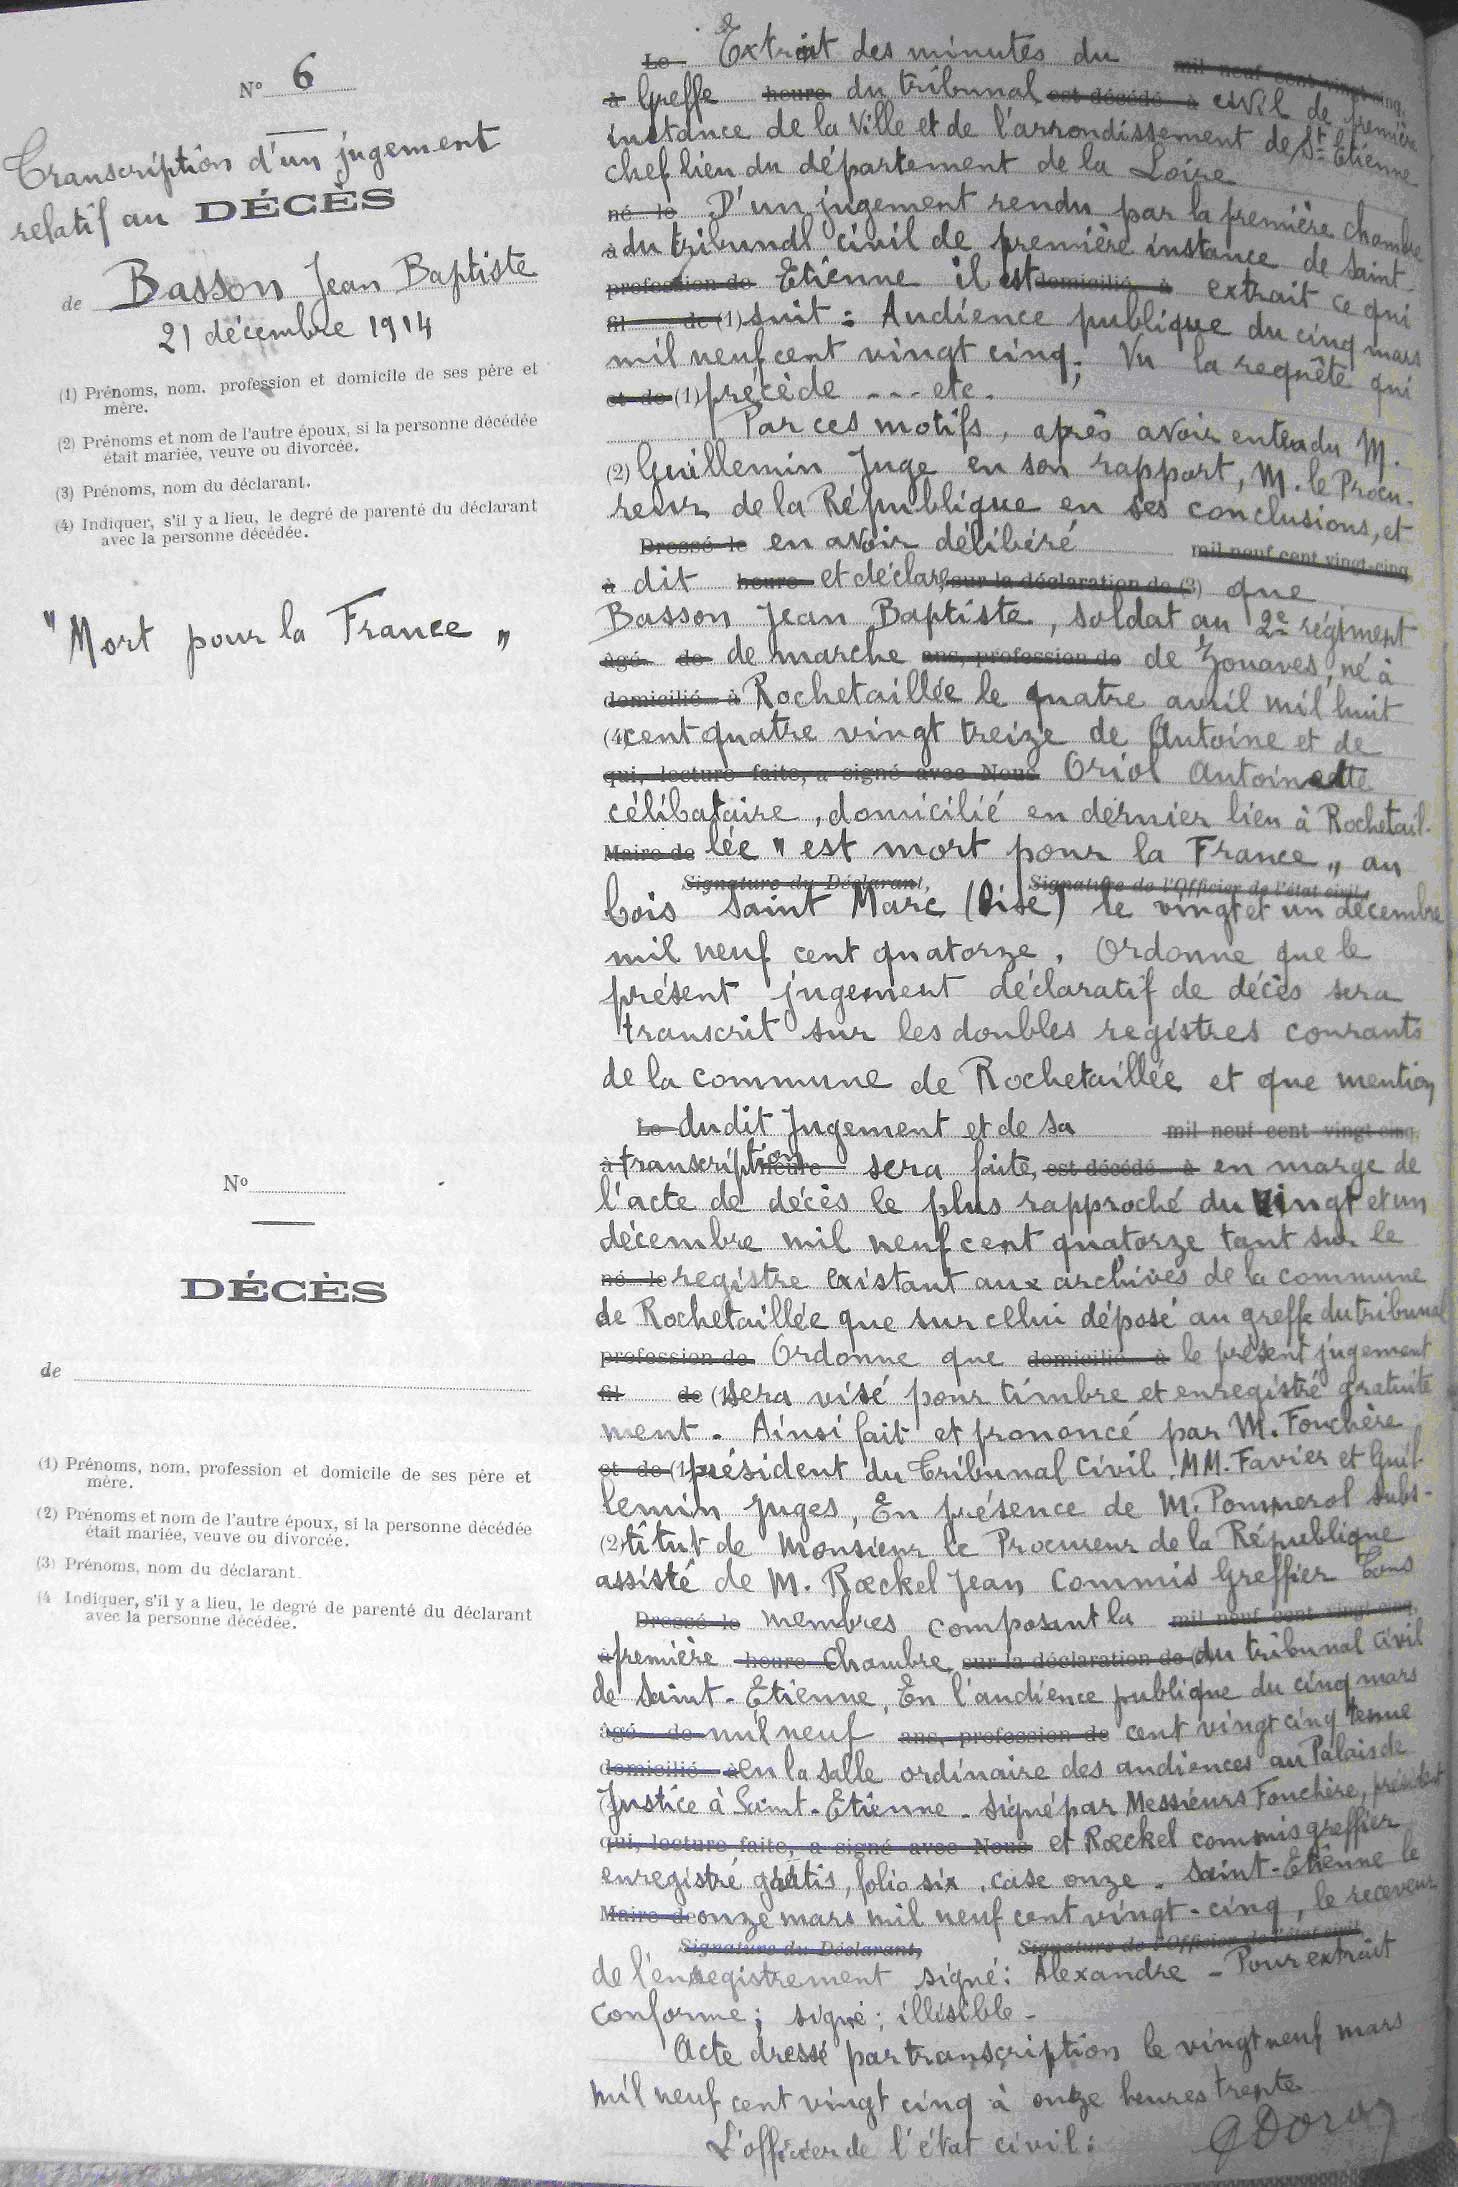 N° 6
Transcription d'un jugement
relatif au DÉCÈS
de Basson Jean Baptiste
21 décembre 1914
(1) Prénoms, nom, profession et domicile de ses père et
mère.
(2) Prénoms et nom de l'autre époux, si la personne décédée
était mariée, veuve ou divorcée.
(3) Prénoms, nom du déclarant.
(4) Indiquer, s'il y a lieu, le degré de parenté du déclarant
avec la personne décédée.
"Mort pour la France"
N°
DÉCÈS
de
(1) Prénoms, nom, profession et domicile de ses père et
mère.
(2) Prénoms et nom de l'autre époux, si la personne décédée
était mariée, veuve ou divorcée.
(3) Prénoms, nom du déclarant.
(4 Indiquer, s'il y a lieu, le degré de parenté du déclarant
avec la personne décédée.
Le Extrait des minutes du mil neuf cent vingt-cinq,
à Greffe heure du tribunal est décédé à civil de première
instance de la Ville et de l'arrondissement de St Etienne
chef lieu du département de la Loire
né le D'un jugement rendu par la première chambre
à du tribunal civil de première instance de Saint-
profession de Etienne il est domicilié à extrait ce qui
fil de (1) suit : Audience publique du cinq mars
mil neuf cent vingt cinq ; Vu la requête qui
et de (1) précède --- etc.
Par ces motifs, après avoir entendu M.
(2) Guillemin Juge en son rapport, M. le Procu-
reur de la République en ses conclusions, et
Dressé le en avoir délibéré mil neuf cent vingt-cinq
à dit heure et déclare, sur la déclaration de (3) que
Basson Jean Baptiste, soldat au 2e régiment
âgé de de marche ans, profession de de Zouaves, né à
domicilié à Rochetaillée le quatre avril mil huit
(4 cent quatre vingt treize de Antoine et de
qui, lecture faite, a signé avec Nous Oriol Antoinette
célibataire, domicilié en dernier lieu à Rochetail-
Maire de lée "est mort pour la France" au
Signature du Déclarant, Signature de l'Officier de l'état civil,
bois Saint Marc (Oise) le vingt et un décembre
mil neuf cent quatorze. Ordonne que le
présent jugement déclaratif de décès sera
transcrit sur les doubles registres courants
de la commune de Rochetaillée et que mention
Le dudit Jugement et de sa mil neuf cent vingt-cinq,
à transcription heure sera faite, est décédé à en marge de
l'acte de décès le plus rapproché du vingt et un
décembre mil neuf cent quatorze tant sur le
né le registre existant aux archives de la commune
de Rochetaillée que sur celui déposé au greffe du tribunal
profession de Ordonne que domicilié à le présent jugement
fil de (1 sera visé pour timbre et enregistré gratuite
ment. Ainsi fait et prononcé par M. Fonchère
et de (1 président du Tribunal Civil. MM. Favier et Guil-
lemin Juges, En présence de M. Pommerol subs-
(2) titut de Monsieur le Procureur de la République
assisté de M. Rœckel Jean Commis Greffier Tous
Dressé le membres composant la mil neuf cent vingt-cinq,
à première heure Chambre sur la déclaration de du tribunal civil
de Saint-Etienne, En l'audience publique du cinq mars
âgé de mil neuf ans, profession de cent vingt cinq tenue
domicilié à en la salle ordinaire des audiences au Palais de
Justice à Saint-Etienne - Signé par Messieurs Fonchère, président
qui, lecture faite, a signé avec Nous et Rœckel commis greffier
enregistré gratis, folio six, case onze. Saint-Etienne le
Maire de onze mars mil neuf cent vingt-cinq, le receveur
Signature du Déclarant, Signature de l'Officier de l'état civil,
de l'enregistrement signé : Alexandre - Pour extrait
conforme ; signé : illisible -
Acte dressé par transcription le vingt neuf mars
mil neuf cent vingt cinq à onze heures trente
L'officier de l'état civil :